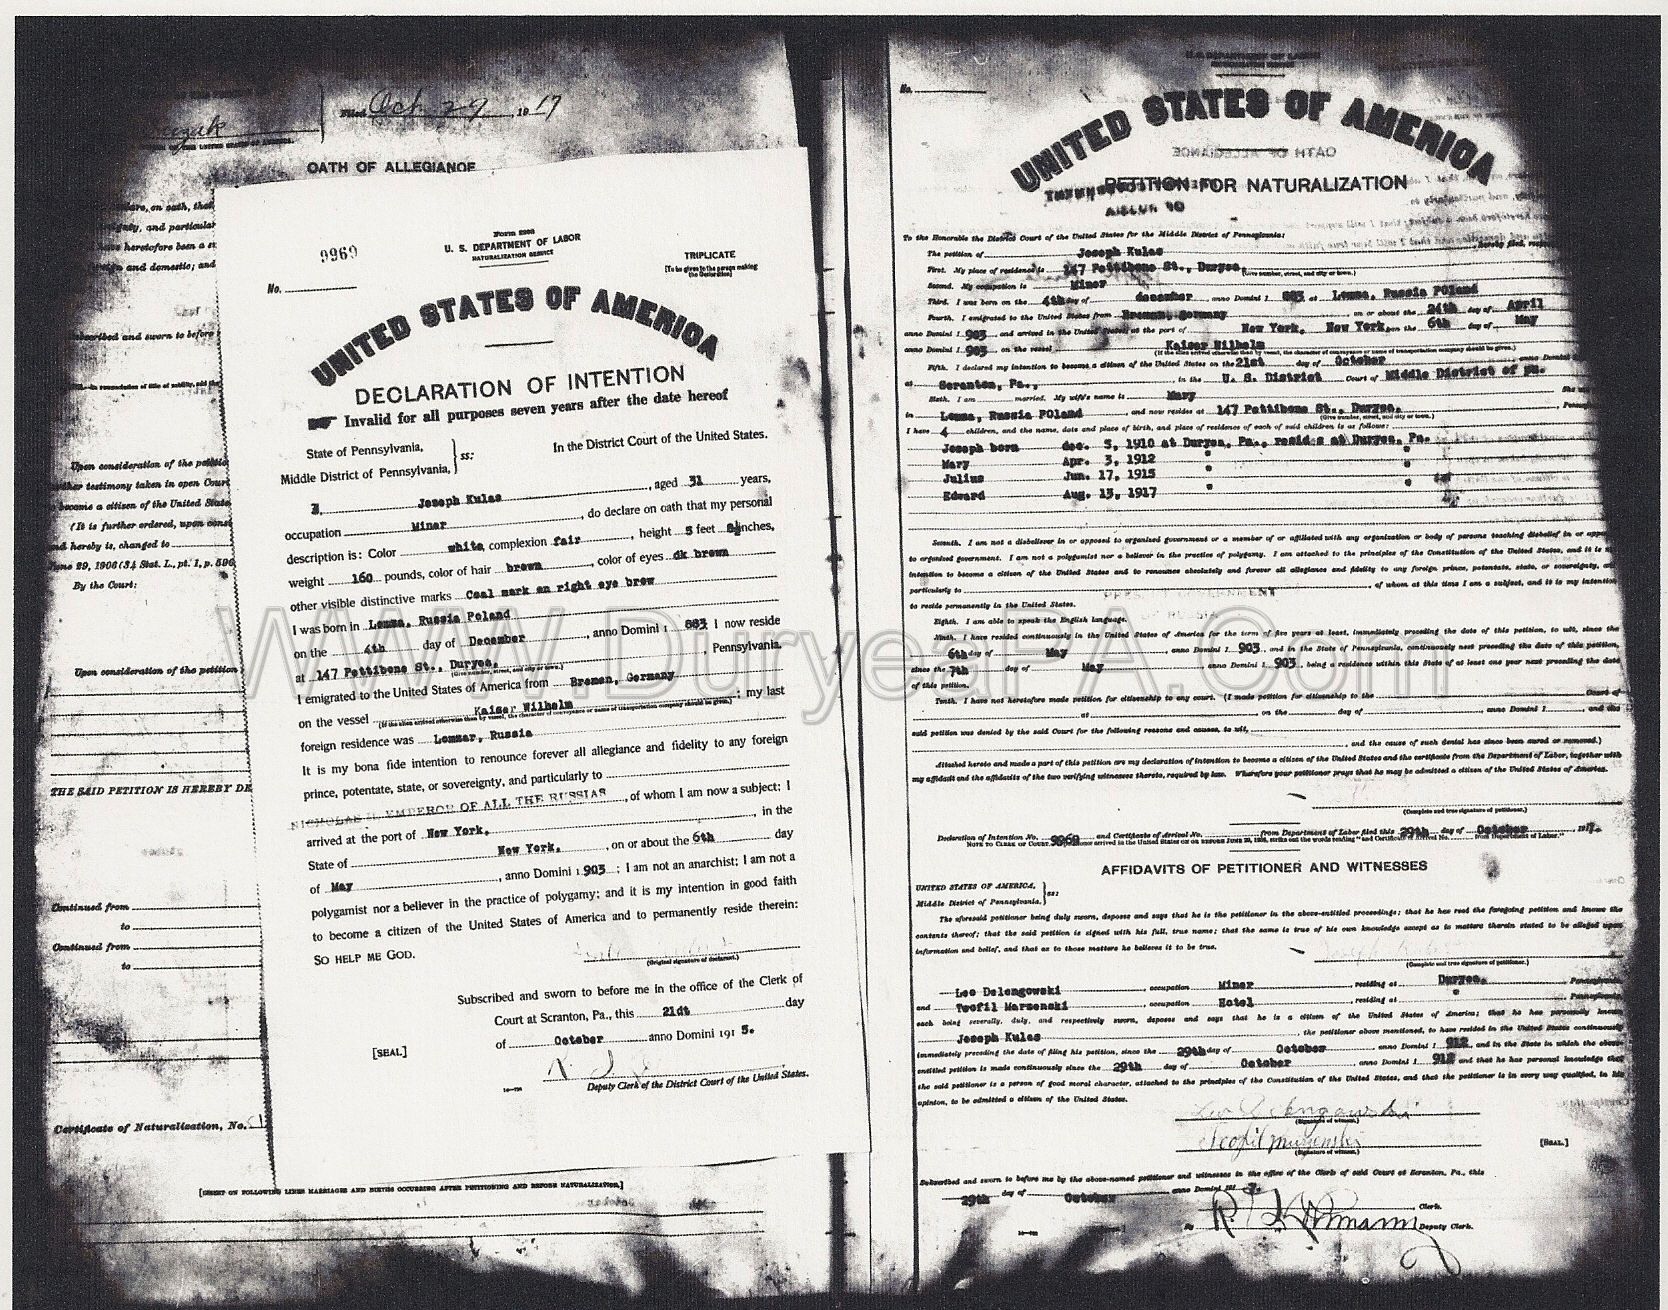 Filed Oct 29, 1917
OATH OF ALLEGIANCE
on oath, that
and particular
heretofore been a
and domestic; and
subscribed and sworn to before
Upon consideration of the petition
further testimony taken in open Court
become a citizen of the United States
(It is further ordered, upon
hereby is, changed to
June 29, 1906 (34 Stat. L., pt. 1, p. 596
By the Court:
Upon consideration of the petition
THE SAID PETITION IS HEREBY DE
Continued from
to
Continued from
to
Certificate of Naturalization, No.
[INSERT ON FOLLOWING LINES MARRIAGES AND BIRTHS OCCURRING AFTER PETITIONING AND BEFORE NATURALIZATION.]
9969
Form 2203
U. S. DEPARTMENT OF LABOR
NATURALIZATION SERVICE
TRIPLICATE
[To be given to the person making the Declaration]
No.
UNITED STATES OF AMERICA
DECLARATION OF INTENTION
Invalid for all purposes seven years after the date hereof
State of Pennsylvania,
Middle District of Pennsylvania,
ss:
In the District Court of the United States.
I, Joseph Kulas, aged 31 years,
occupation Miner, do declare on oath that my personal
description is: Color white, complexion fair, height 5 feet 8½ inches,
weight 160 pounds, color of hair brown, color of eyes dk brown
other visible distinctive marks Coal mark on right eye brow
I was born in Lomma, Russia Poland
on the 4th day of December, anno Domini 1 883 I now reside
at 147 Pettibone St., Duryea, Pennsylvania.
(Give number, street, and city or town.)
I emigrated to the United States of America from Bremen, Germany
on the vessel Kaiser Wilhelm; my last
(If the alien arrived otherwise than by vessel, the character of conveyance or name of transportation company should be given.)
foreign residence was Lommar, Russia
It is my bona fide intention to renounce forever all allegiance and fidelity to any foreign
prince, potentate, state, or sovereignty, and particularly to
NICHOLAS II EMPEROR OF ALL THE RUSSIAS, of whom I am now a subject; I
arrived at the port of New York, in the
State of New York, on or about the 6th day
of May, anno Domini 1 903; I am not an anarchist; I am not a
polygamist nor a believer in the practice of polygamy; and it is my intention in good faith
to become a citizen of the United States of America and to permanently reside therein:
SO HELP ME GOD.
(Original signature of declarant.)
Subscribed and sworn to before me in the office of the Clerk of
Court at Scranton, Pa., this 21dt day
[SEAL]
of October anno Domini 191 5.
Deputy Clerk of the District Court of the United States.
No.
UNITED STATES OF AMERICA
PETITION FOR NATURALIZATION
To the Honorable the District Court of the United States for the Middle District of Pennsylvania:
The petition of Joseph Kulas, hereby filed,
First. My place of residence is 147 Pettibone St., Duryea,
(Give number, street, and city or town.)
Second. My occupation is Miner
Third. I was born on the 4th day of december anno Domini 1 883 at Lomma, Russia POland
Fourth. I emigrated to the United States from Bremen, Germany on or about the 24th day of April
anno Domini 1 903, and arrived in the United States, at the port of New York, New York, on the 6th day of May
anno Domini 1 903, on the vessel Kaiser Wilhelm
(If the alien arrived otherwise than by vessel, the character of conveyance or name of transportation company should be given.)
Fifth. I declared my intention to become a citizen of the United States on the 21st day of October anno Domini
at Scranton, Pa., in the U. S. District Court of Middle District of pa.
Sixth. I am married. My wife's name is Mary She
in Lomma, Russia POland, and now resides at 147 Pettibone St., Duryea,
(Give number, street, and city or town.)
I have 4 children, and the name, date and place of birth, and place of residence of each of said children is as follows:
Joseph born dec. 5, 1910 at Duryea, Pa., resides at Duryea, Pa.
Mary Apr. 3, 1912 " "
Julius Jun. 17, 1915 " "
Edward Aug. 13, 1917 " "
Seventh. I am not a disbeliever in or opposed to organized government or a member of or affiliated with any organization or body of persons teaching disbelief in or
to organized government. I am not a polygamist nor a believer in the practice of polygamy. I am attached to the principles of the Constitution of the United States, and it is
intention to become a citizen of the United States and to renounce absolutely and forever all allegiance and fidelity to any foreign prince, potentate, state, or sovereignty,
particularly to of whom at this time I am a subject, and it is my intention
to reside permanently in the United States.
Eighth. I am able to speak the English language.
Ninth. I have resided continuously in the United States of America for the term of five years at least, immediately preceding the date of this petition, to wit, since the
6th day of May anno Domini 1 903, and in the State of Pennsylvania, continuously next preceding the date of this petition,
since the 7th day of May anno Domini 1 903, being a residence within this State of at least one year next preceding the date
of this petition.
Tenth. I have not heretofore made petition for citizenship to any court. (I made petition for citizenship to the Court of
at on the day of anno Domini 1 and the
said petition was denied by the said Court for the following reasons and causes, to wit,
and the cause of such denial has since been cured or removed.)
Attached hereto and made a part of this petition are my declaration of intention to become a citizen of the United States and the certificate from the Department of Labor, together with
my affidavit and the affidavits of the two verifying witnesses thereto, required by law. Wherefore your petitioner prays that he may be admitted a citizen of the United States of America.
(Complete and true signature of petitioner.)
Declaration of Intention No. 9969 and Certificate of Arrival No. from Department of Labor filed this 29th day of October, 191 7.
AFFIDAVITS OF PETITIONER AND WITNESSES
UNITED STATES OF AMERICA,
Middle District of Pennsylvania,
ss:
The aforesaid petitioner being duly sworn, deposes and says that he is the petitioner in the above-entitled proceedings; that he has read the foregoing petition and knows the
contents thereof; that the said petition is signed with his full, true name; that the same is true of his own knowledge except as to matters therein stated to be alleged upon
information and belief, and that as to those matters he believes it to be true.
(Complete and true signature of petitioner.)
Leo Delengowski, occupation Miner, residing at Duryea, Pennsylvania
and Teofil Marzenski, occupation Hotel, residing at " Pennsylvania
each being severally, duly, and respectively sworn, deposes and says that he is a citizen of the United States of America; that he has personally known
Joseph Kulas, the petitioner above mentioned, to have resided in the United States continuously
immediately preceding the date of filing his petition, since the 29th day of October anno Domini 1 912, and in the State in which the above-
entitled petition is made continuously since the 29th day of October anno Domini 1 912 and that he has personal knowledge that
the said petitioner is a person of good moral character, attached to the principles of the Constitution of the United States, and that the petitioner is in every way qualified, in his
opinion, to be admitted a citizen of the United States.
(Signature of witness.)
(Signature of witness.)
[SEAL.]
Subscribed and sworn to before me by the above-named petitioner and witnesses in the office of the Clerk of said Court at Scranton, Pa., this
29th day of October anno Domini 191 7.
Clerk.
By Deputy Clerk.
WWW.DuryeaPA.Com